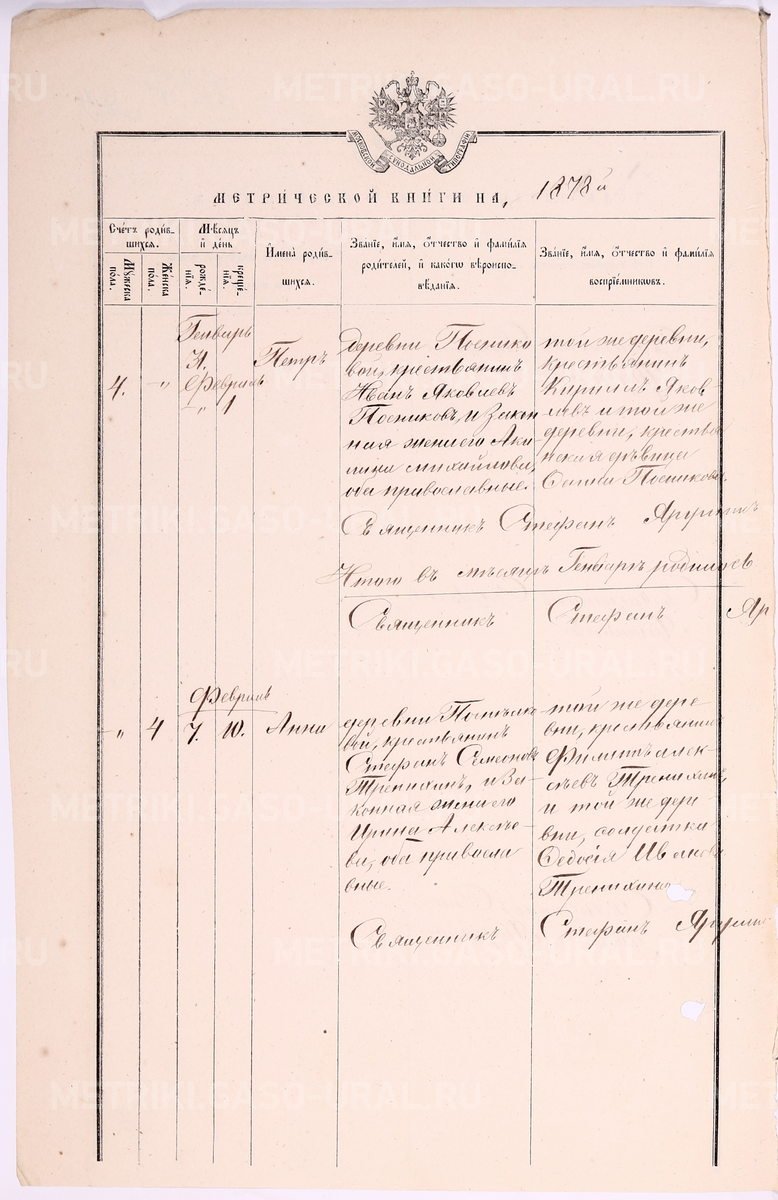 МЕТРИЧЕСКОЙ КНИГИ НА 1878 й
Счетъ родив-
шихся.
Мѣсяцъ
и день
Мужеска
пола.
Женска
пола.
рожде-
нїя.
креще-
нїя.
Имена родив-
шихся.
Званїе, имя, отчество и фамилїя
родителей, и какогѡ вѣроиспо-
вѣданїя.
Званїе, имя, отчество и фамилїя
воспрїемниковъ.
4.
"
Генварь
31.
Февраль
" 1
Петръ
деревни
вой, крестьянинъ
Иванъ Яковлевъ
Посниковъ, и закон
ная жена его Аки
лина Михайлова,
оба православные.
той же деревни,
крестьянинъ
Кириллъ Яков
левъ и той же
деревни, крестья
нская дѣвица
Посникова
Священникъ Стефанъ
Итого въ мѣсяцѣ Генварѣ родилось
Священникъ Стефанъ Яр
Февраль
" 4 7. 10. Анна
деревни
вой, крестьянинъ
Стефанъ Симеоновъ
Тренихинъ, и за-
конная жена его
Ирина Алексѣе-
ва, оба правосла
вные.
той же дере-
вни, крестьянинъ
Филиппъ Алек-
сѣевъ Тренихинъ,
и той же дере-
вни, солдатка
Ѳедосія Иванова
Тренихина
Священникъ Стефанъ
METRIKI.GASO-URAL.RU